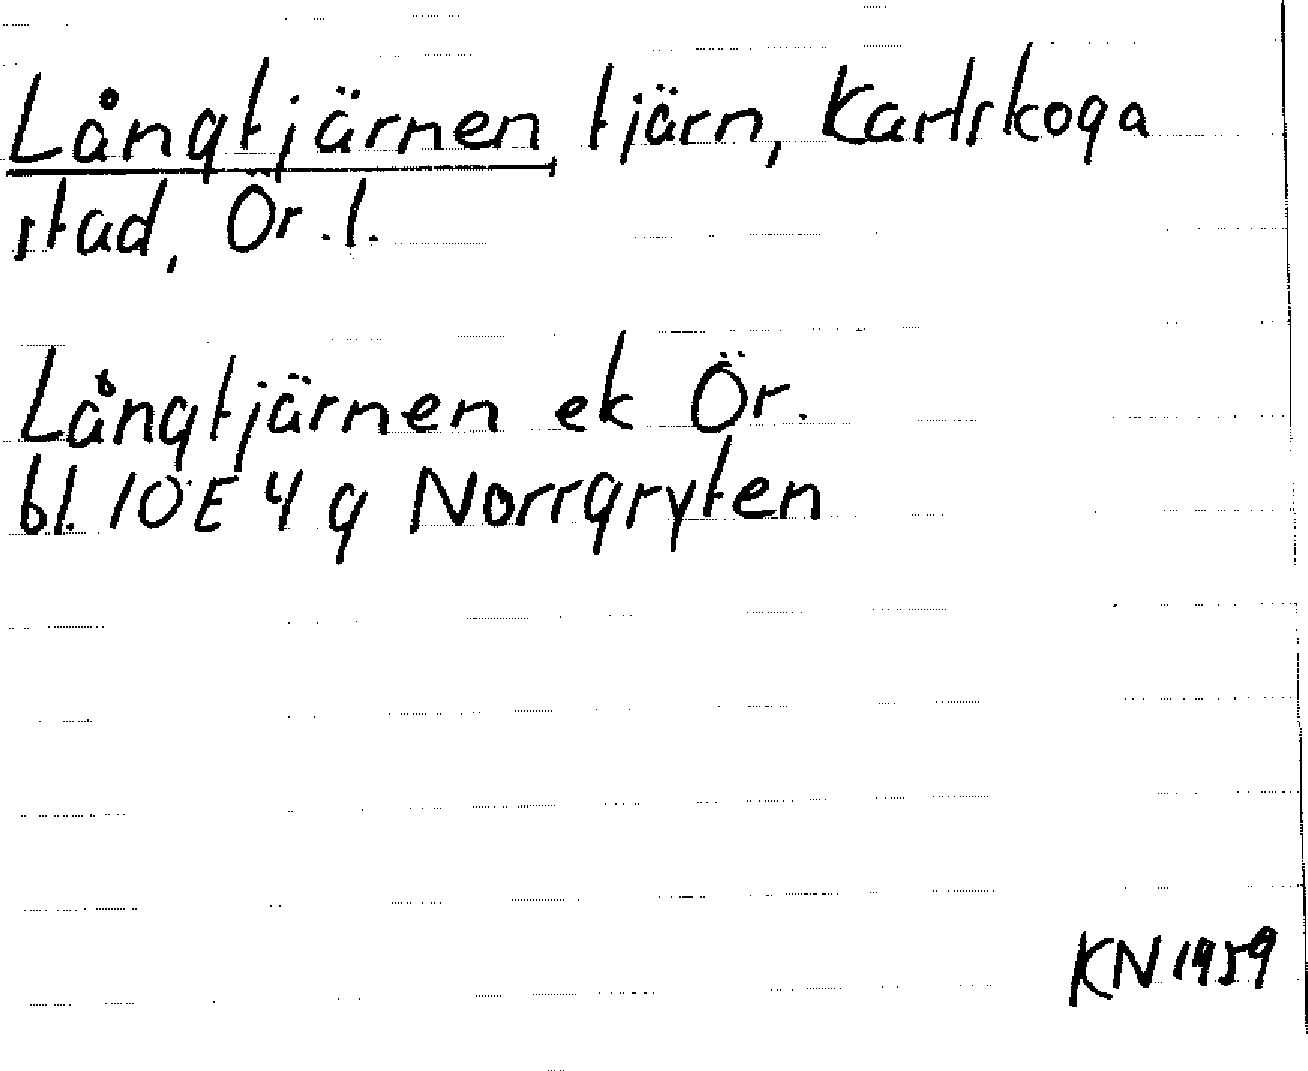 Långtjärnen tjärn, Karlskoga
stad, Ör. l.
Långtjärnen ek Ör.
bl. 10E 4g Norrgryten
KN 1959